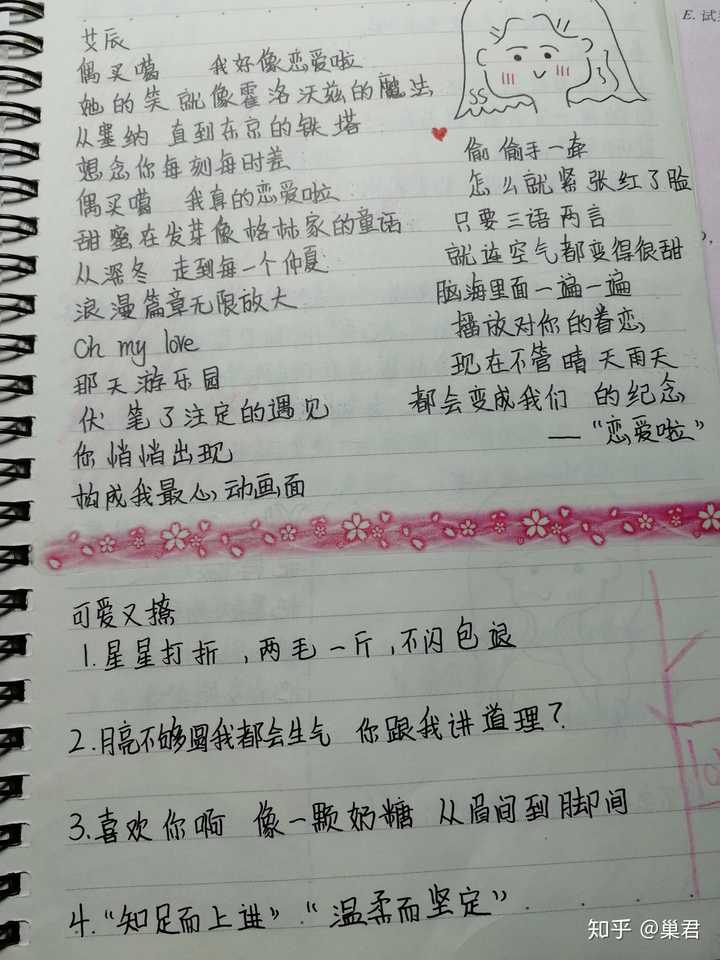 艾辰
偶买噶 我好像恋爱啦
她的笑就像霍洛沃兹的魔法
从塞纳 直到东京的铁塔
想念你每刻每时差
偶买噶 我真的恋爱啦
甜蜜在发芽像格林家的童话
从深冬 走到每一个仲夏
浪漫篇章无限放大
Oh my love
那天游乐园
伏笔了注定的遇见
你悄悄出现
构成我最心动画面
偷偷手一牵
怎么就紧张红了脸
只要三语两言
就连空气都变得很甜
脑海里面一遍一遍
播放对你的眷恋
现在不管晴天雨天
都会变成我们 的纪念
——“恋爱啦”
可爱又撩
1.星星打折,两毛一斤,不闪包退
2.月亮不够圆我都会生气 你跟我讲道理?
3.喜欢你啊 像一颗奶糖 从眉间到脚间
4.“知足而上进”“温柔而坚定”
E. 试
知乎 @巢君